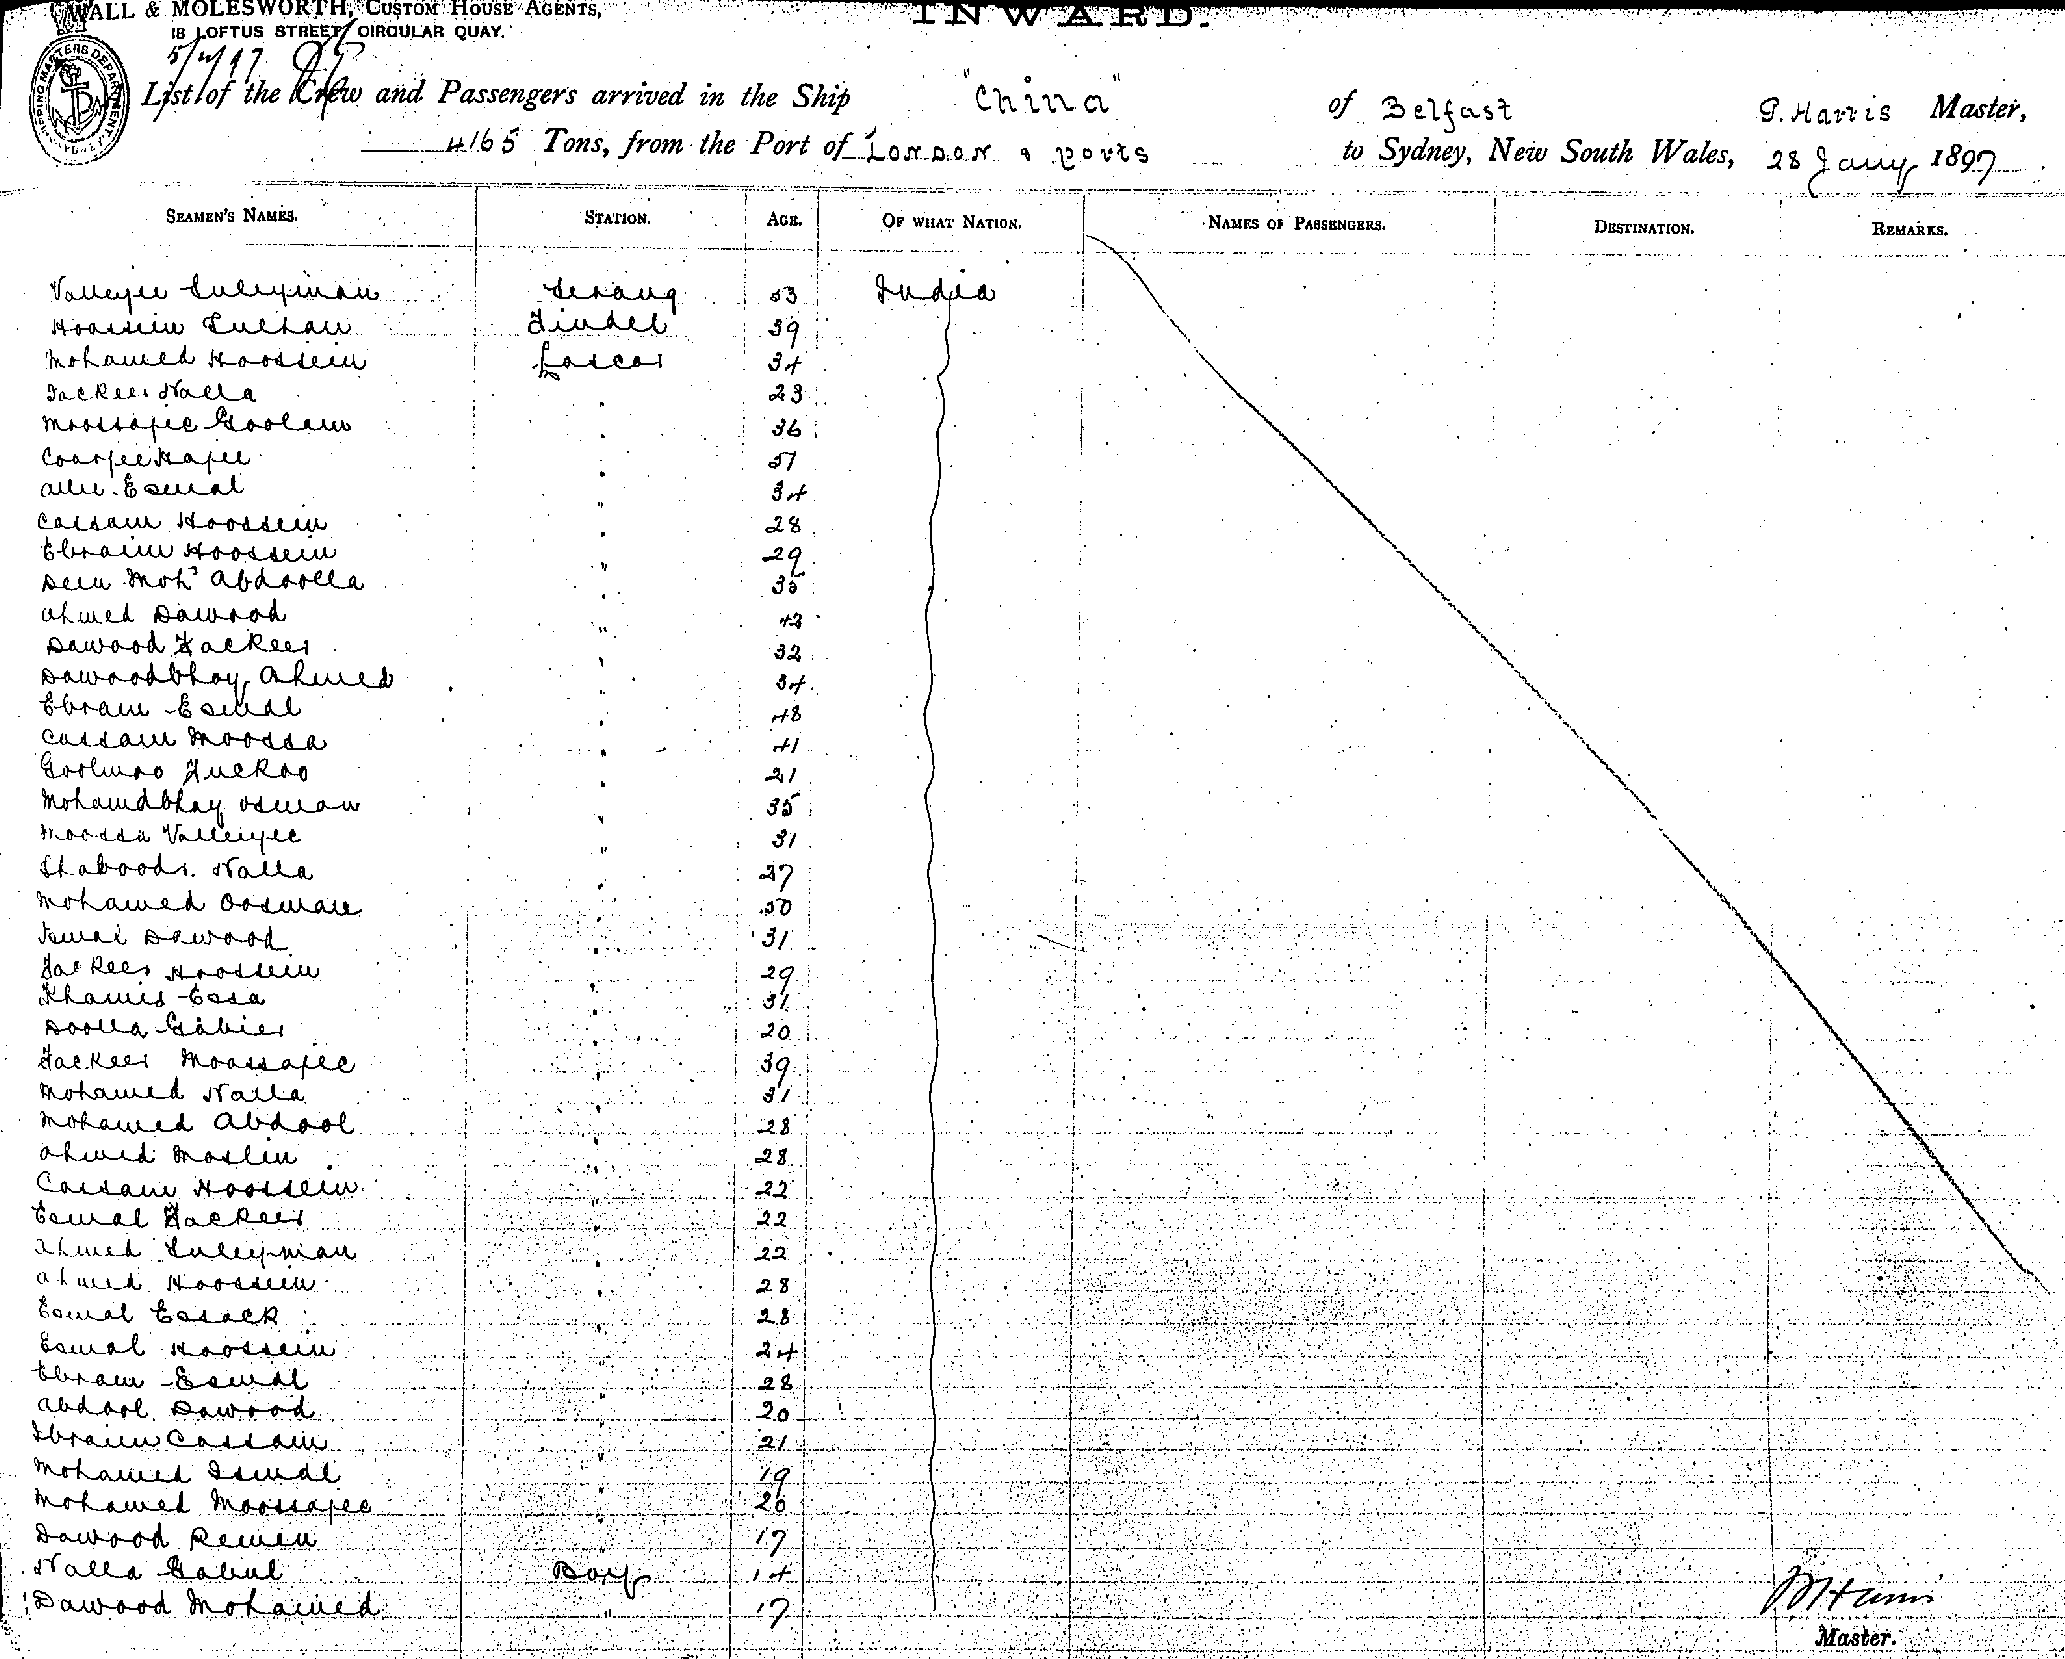 WALL & MOLESWORTH, CUSTOM HOUSE AGENTS,
18 LOFTUS STREET, CIRCULAR QUAY.
INWARD.
SHIPPING MASTERS DEPARTMENT
List of the Crew and Passengers arrived in the Ship "China" of Belfast P. Harris Master,
4165 Tons, from the Port of London & ports to Sydney, New South Wales, 28 Jany 1897
SEAMEN'S NAMES. STATION. AGE. OF WHAT NATION. NAMES OF PASSENGERS. DESTINATION. REMARKS.
Valleyjee Suleyman Serang 53 India
Hoossein Sulhan Tindel 39
Mohamed Hoossein Lascar 34
Fackeer Nalla " 23
Moossajee Goolam " 36
Coorjee Hajee " 51
Allee Esmal " 34
Cassam Hoossein " 28
Ebraim Hoossein " 29
Deen Mohd Abdoolla " 35
Ahmed Dawood " 42
Dawood Fackeer " 32
Dawoodbhoy Ahmed " 34
Ebram Esmal " 48
Cassam Moossa " 41
Goolmoo Fuckoo " 21
Mohamdbhoy Osman " 35
Moossa Valleyjee " 31
Shaboodr. Nalla " 27
Mohamed Oosman " 50
Ismal Dawood " 31
Fackeer Hoossein " 29
Khamis Essa " 31
Doolla Gabier " 20
Fackeer Moossajee " 39
Mohamed Nalla " 31
Mohamed Abdool " 28
Ahmed Moslin " 28
Cassam Hoossein " 22
Esmal Fackeer " 22
Ahmed Suleyman " 22
Ahmed Hoossein " 28
Esmal Essack " 28
Esmal Hoossein " 24
Ebram Esmal " 28
Abdool Dawood " 20
Ibraim Cassam " 21
Mohamed Ismal " 19
Mohamed Moossajee " 20
Dawood Remen 17
Nalla Gabul Boy 14
Dawood Mohamed " 17
P Harris
Master.